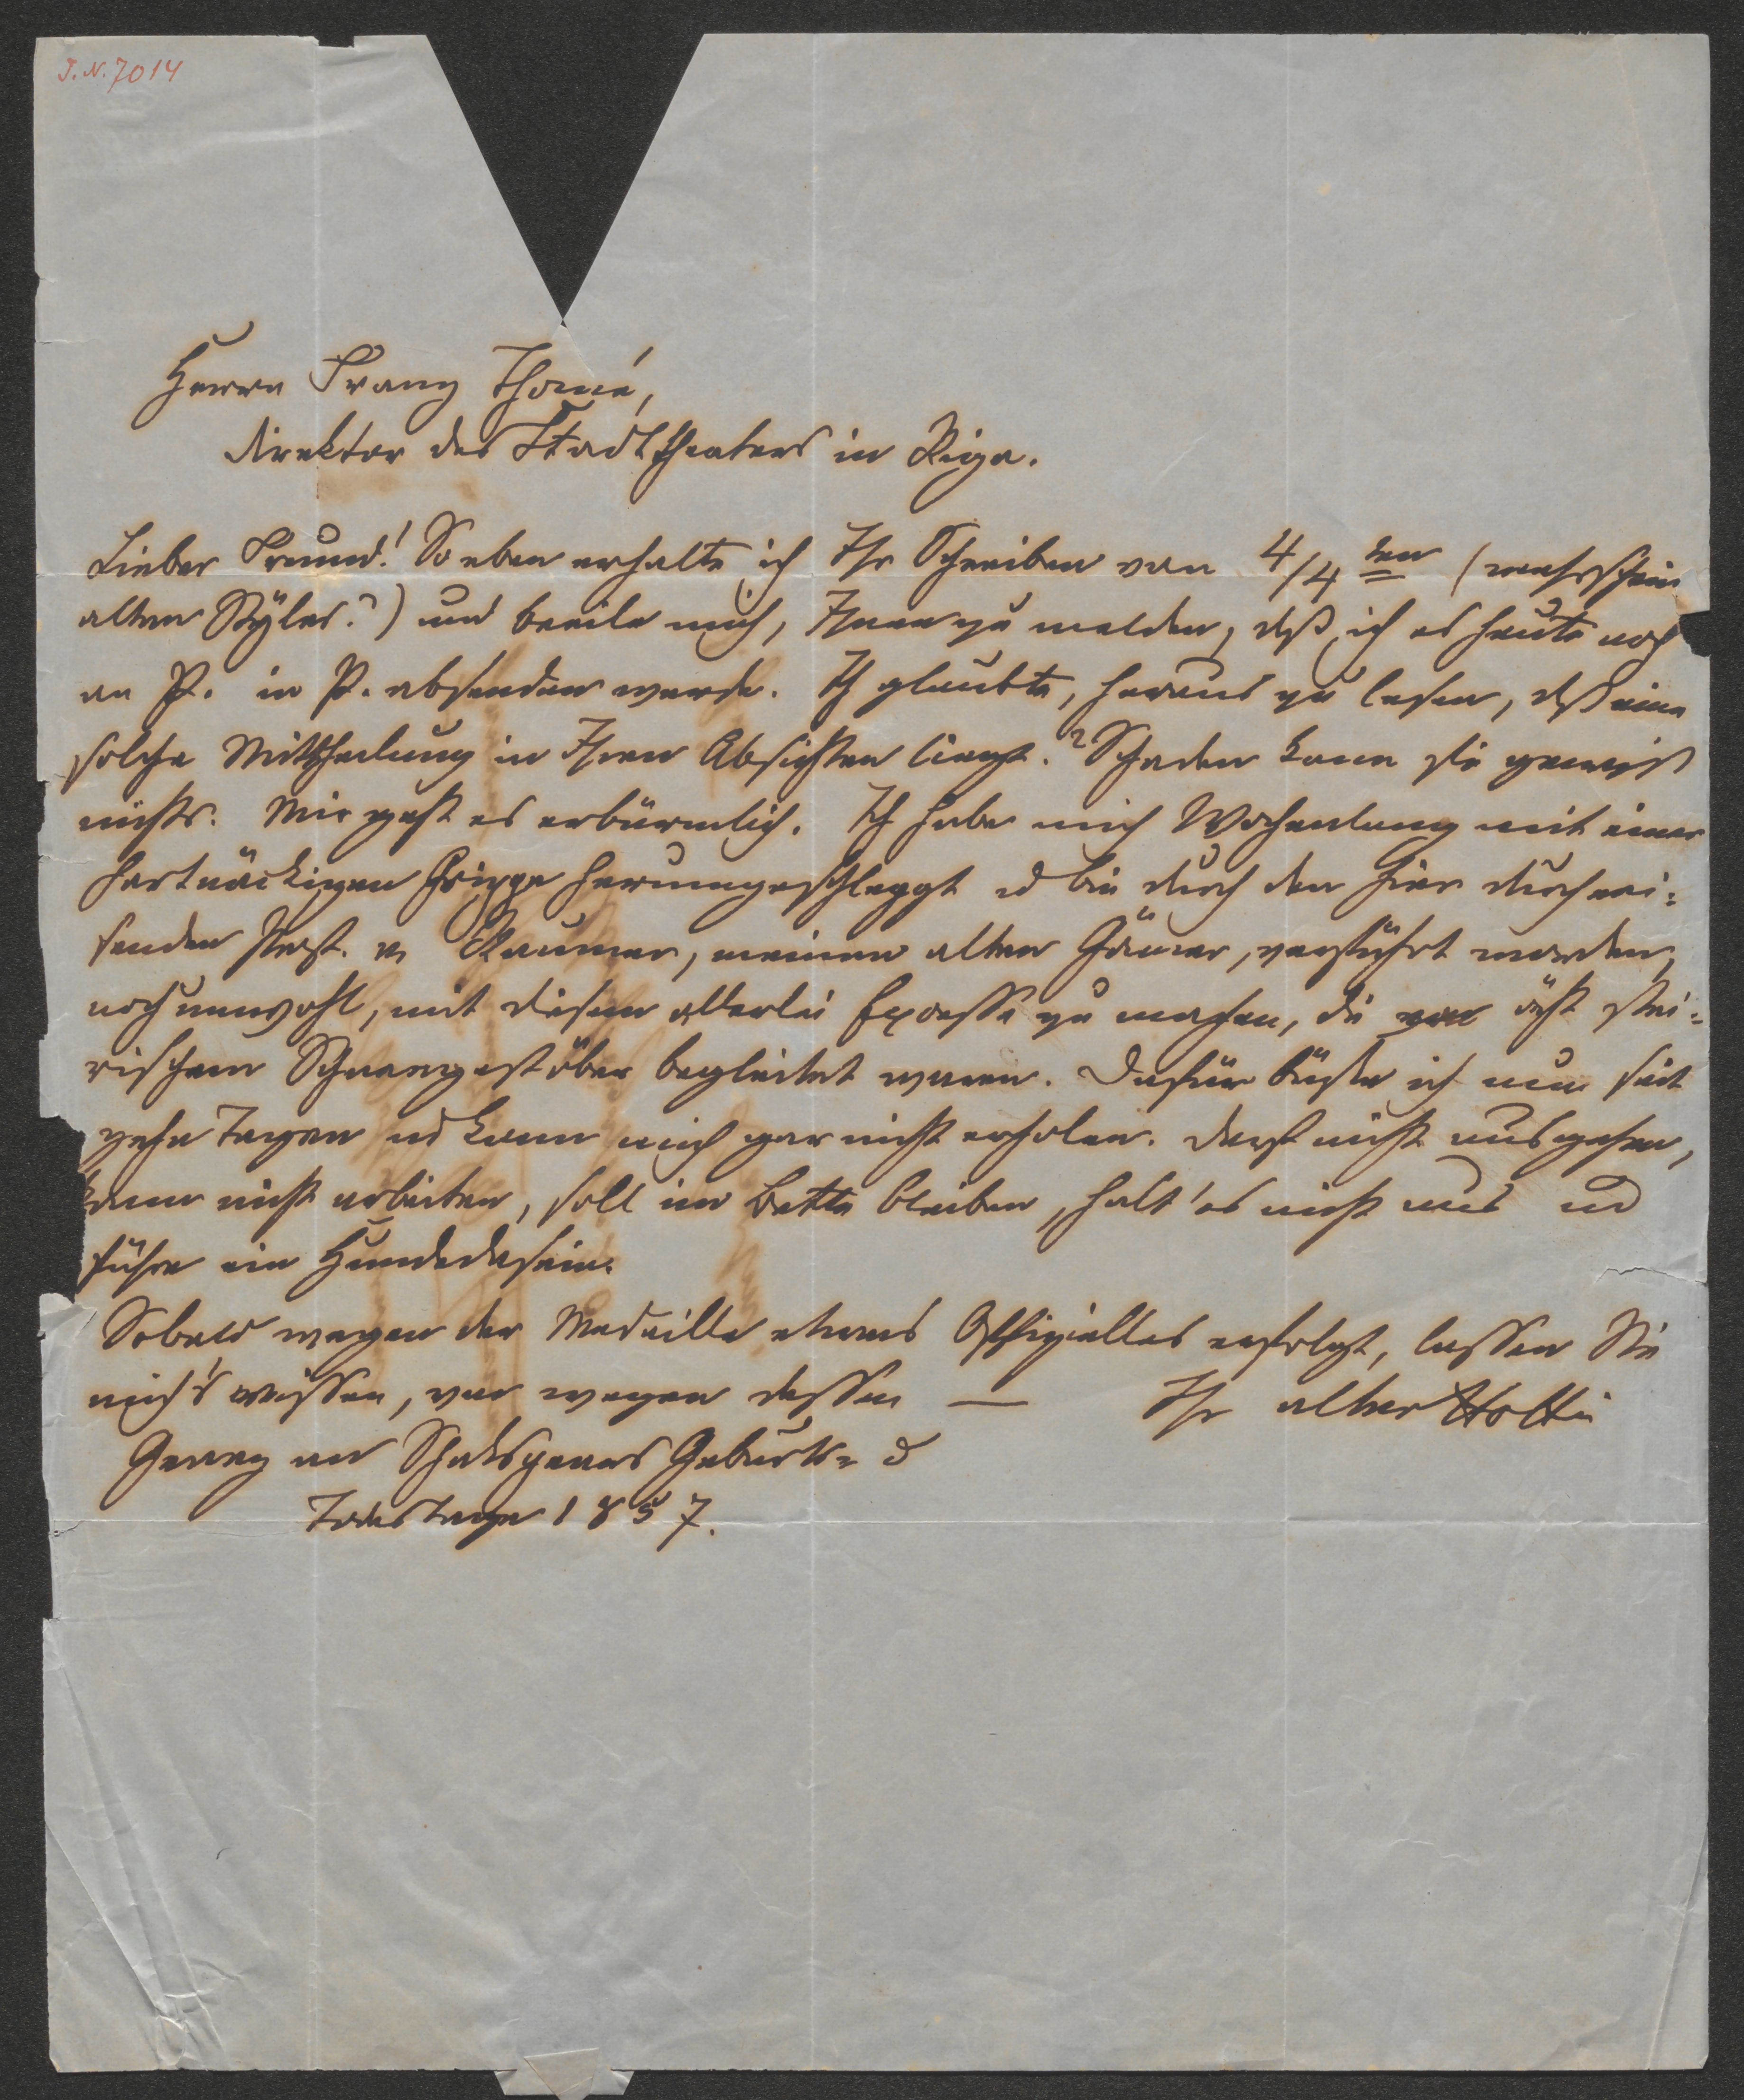 J. N. 7014
Herrn Franz Thomé,
Direktor des Stadttheaters in Riga.
Lieber Freund! So eben erhalte ich Ihr Schreiben vom 4/4 ten (wahrschein
alten Styles?) und beeile mich, Ihnen zu melden, daß ich es heute noch
an P. in P. absenden werde. Ich glaubte, heraus zu lesen, daß eine
solche Mittheilung in Ihren Absichten liegt.? Schaden kann sie gewiß
nichts. Mir geht es erbärmlich. Ich habe mich Wochenlang mit einer
hartnäckigen Grippe herumgeschleppt u bin durch den hier durchrei=
senden v Raumer, meinen alten Gönner, verführt worden,
noch unwohl, mit diesem allerlei Excesse zu machen, die von ächt stei=
rischem Schneegestöber begleitet waren. Dafür büße ich nun seit
zehn Tagen und kann mich gar nicht erholen. Darf nicht ausgehen,
kann nicht arbeiten, soll im Bette bleiben, halt' es nicht aus und
führe ein Hundedasein.
Sobald wegen der Medaille etwas Offizielles erfolgt, lassen Sie
mich's wissen, von wegen dessen — Ihr alter Holtei
Graz an Shakspeares Geburts= u
Todestage 1857.